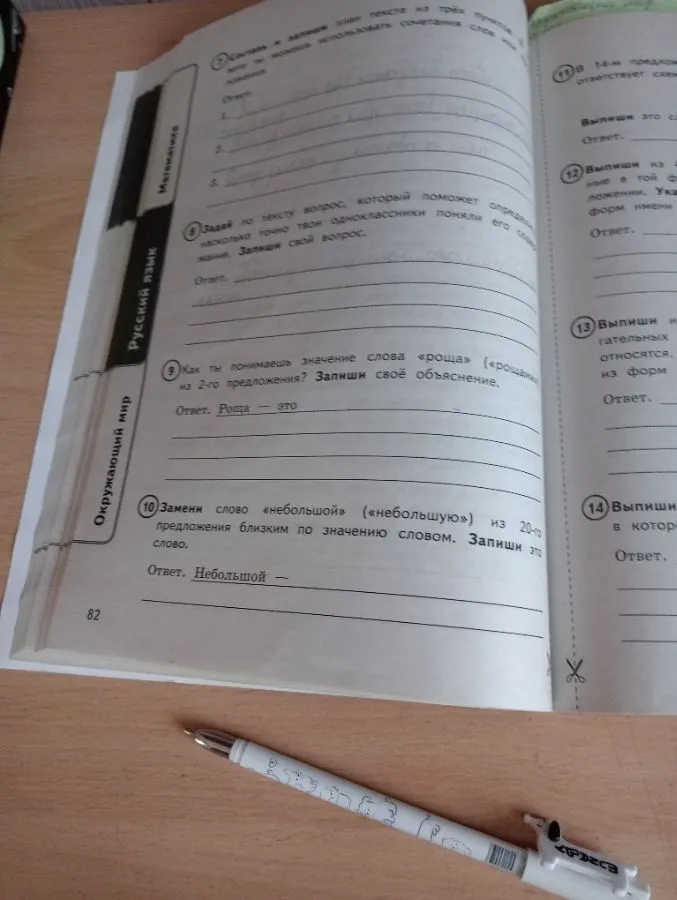 7 Составь и запиши план текста из трёх пунктов. В
вете ты можешь использовать сочетания слов или
ложения.
Ответ.
1.
2.
3.
8 Задай по тексту вопрос, который поможет определить,
насколько точно твои одноклассники поняли его содер
жание. Запиши свой вопрос.
Ответ.
9 Как ты понимаешь значение слова «роща» («рощами»
из 2-го предложения? Запиши своё объяснение.
Ответ. Роща — это
10 Замени слово «небольшой» («небольшую») из 20-го
предложения близким по значению словом. Запиши это
слово.
Ответ. Небольшой —
82
Математика
Русский язык
Окружающий мир
11 В 14-м предлож
ответствует схем
Выпиши это сл
Ответ.
12 Выпиши из
ные в той ф
ложении. Ука
форм имени
Ответ.
13 Выпиши и
гательных
относятся.
из форм
Ответ.
14 Выпиши
в котор
Ответ.